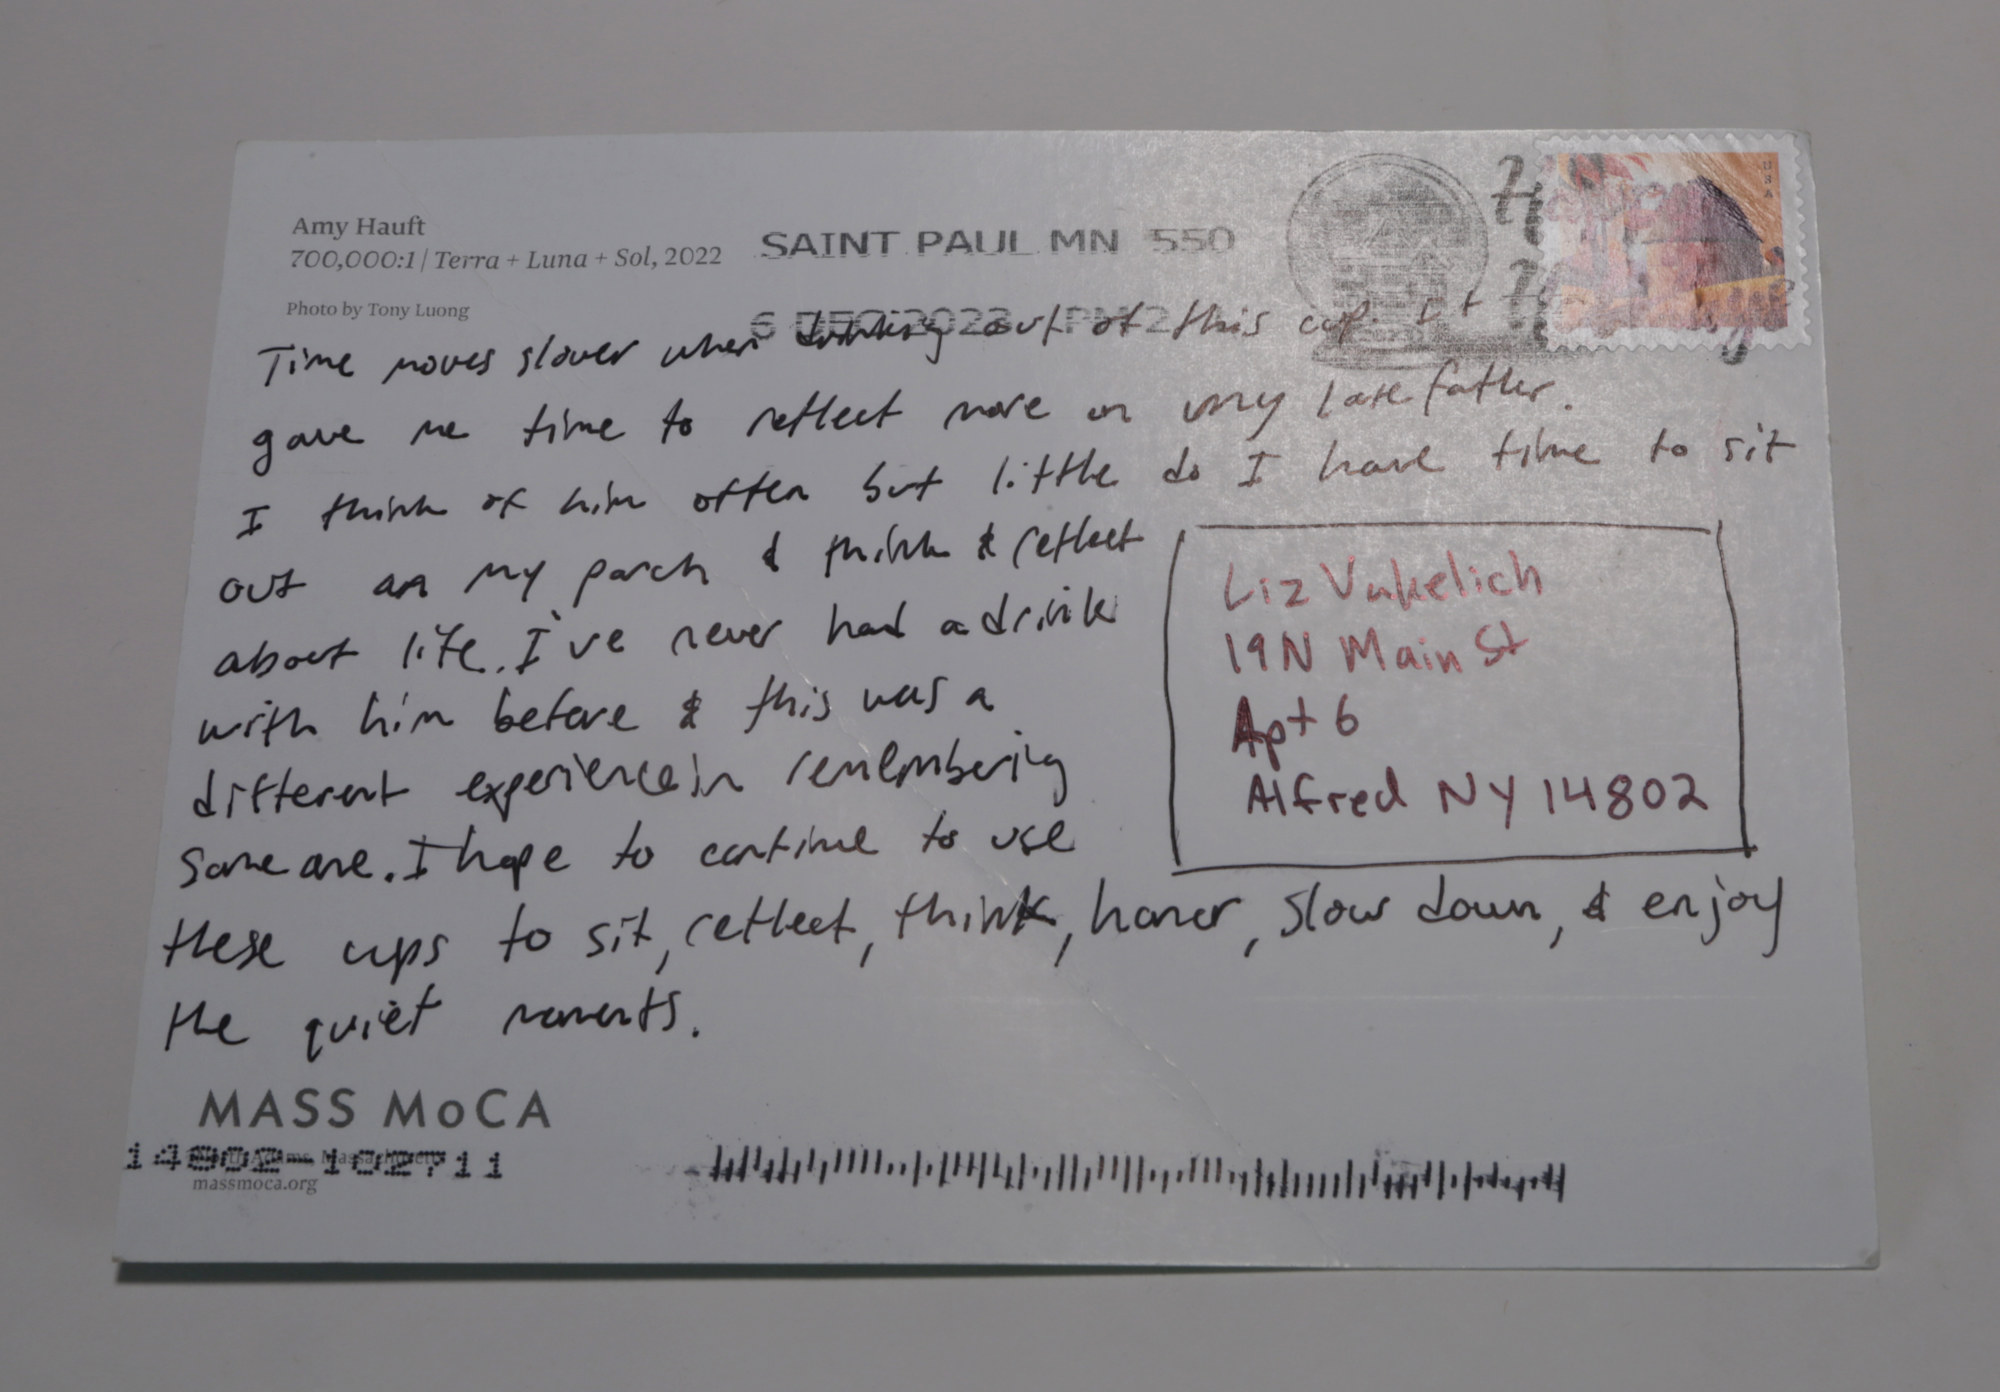 Amy Hauft
700,000:1 | Terra + Luna + Sol, 2022
Photo by Tony Luong
SAINT PAUL MN 550
6 DEC 2023 PM 2
USA
Time moves slower when drinking out of this cup. It
gave me time to reflect more on my late father.
I think of him often but little do I have time to sit
out on my porch & think & reflect
about life. I've never had a drink
with him before & this was a
different experience in remembering
someone. I hope to continue to use
these cups to sit, reflect, think, honor, slow down, & enjoy
the quiet moments.
Liz Vukelich
19N Main St
Apt 6
Alfred NY 14802
MASS MoCA
14802-102711
massmoca.org